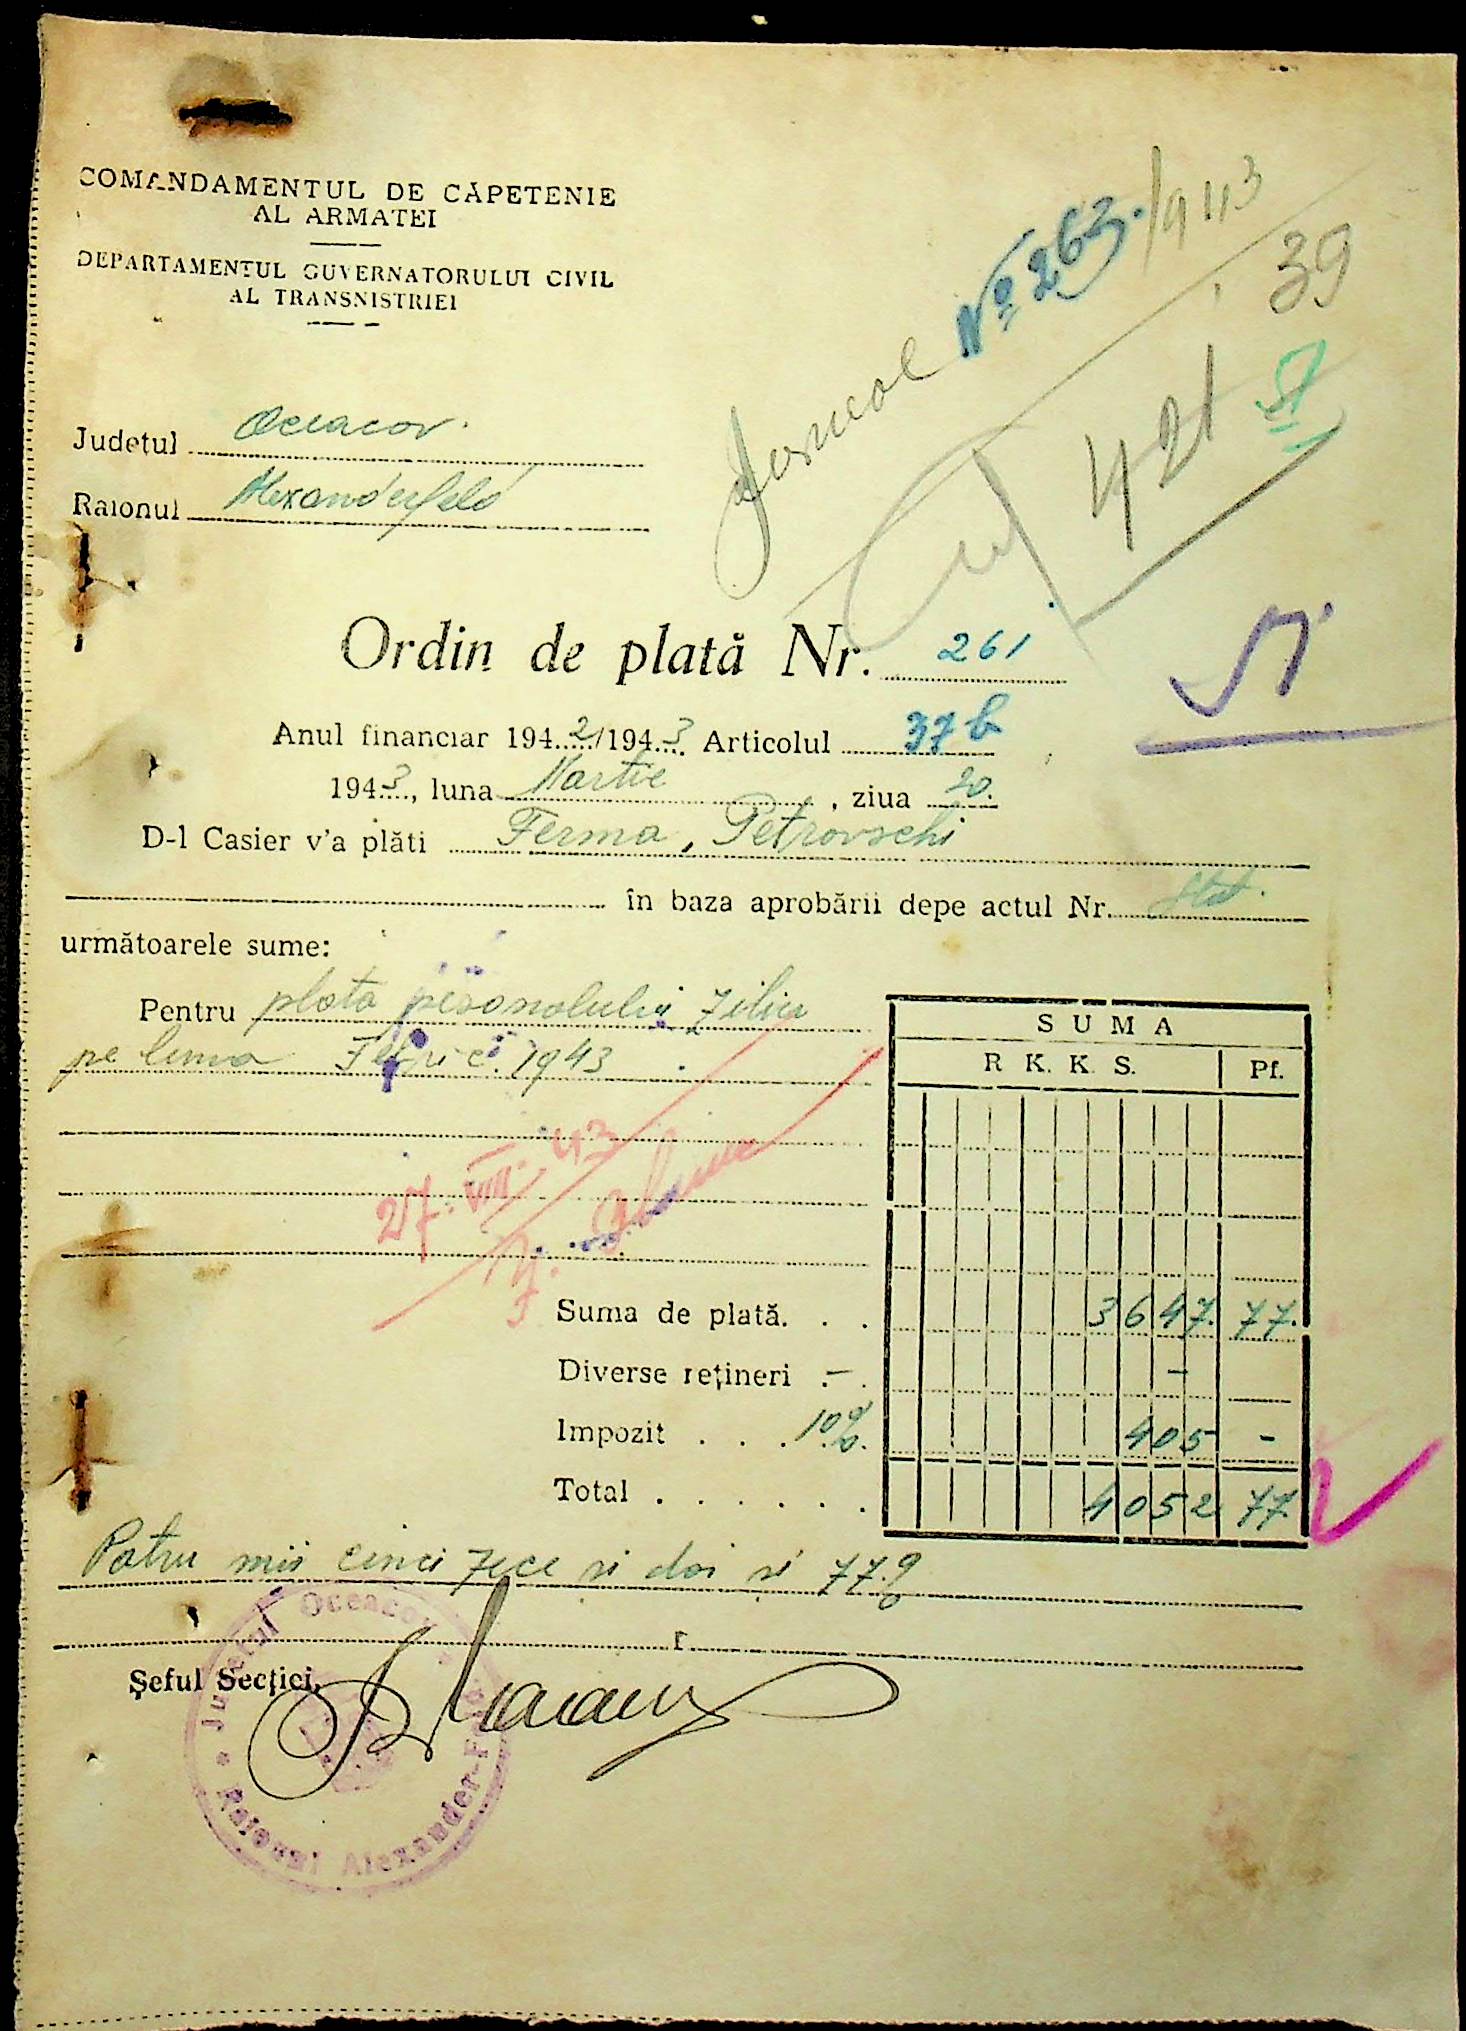 COMANDAMENTUL DE CĂPETENIE
AL ARMATEI
DEPARTAMENTUL GUVERNATORULUI CIVIL
AL TRANSNISTRIEI
Jurnal Nº 263./943
39
421
Judetul Oceacov.
Raionul Alexanderfeld
Ordin de plată Nr. 261
Anul financiar 1942/1943 Articolul 37 b
1943, luna Martie, ziua 20.
D-l Casier v'a plăti Ferma, Petrovschi
în baza aprobării depe actul Nr. Stat.
următoarele sume:
Pentru plata personalului zilier
pe luna 1943
SUMA
R K. K. S. Pf.
27. VIII. 43
Suma de plată. . . 3647. 77.
Diverse reţineri . — . —
Impozit . . . 10%. 405 -
Total . . . . . . . 4052 77
Patru mii cinci zece si doi si 77
r
Şeful Secţiei,
Judetul Oceacov
Raionul Alexander-Feld